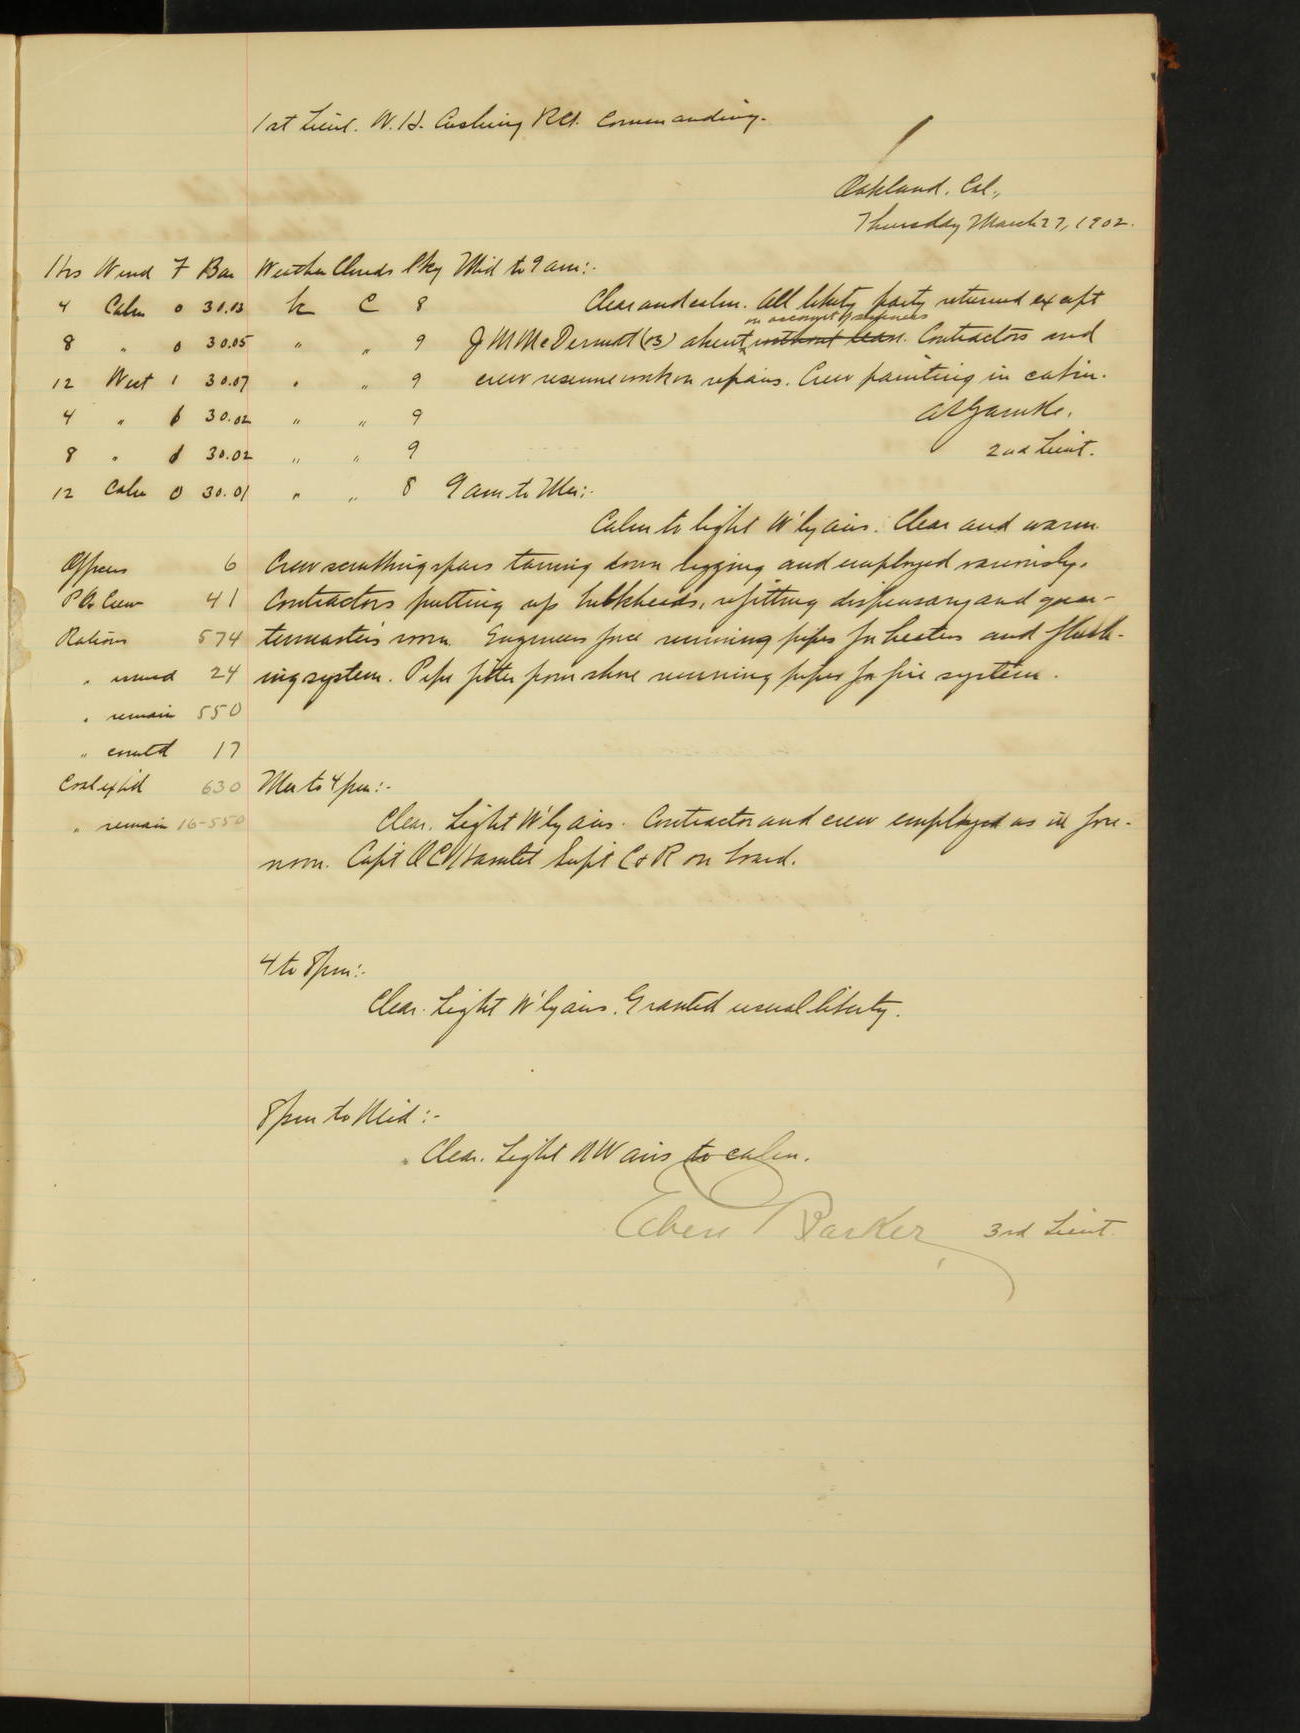 1st Lieut. W. H. Cushing RCS. Commanding.
Oakland. Cal.,
Thursday March 27, 1902.
Hrs Wind F Bar Weather Clouds Sky Mid to 9 am:-
4 Calm 0 30.03 C 8 Clear and calm. All liberty party returned except
on account of sickness
8 " 0 30.05 " " 9 J M McDermott (B) absent without leave. Contractors and
12 West 1 30.07 " " 9 crew resume work on repairs. Crew painting in cabin.
4 " 1 30.02 " " 9
8 " 1 30.02 " " 9 2nd Lieut.
12 Calm 0 30.01 " " 8 9 am to Mer:-
Calm to light W'ly airs. Clear and warm
Officers 6 Crew scrubbing spars tarring down rigging and employed variously.
P.O. & Crew 41 Contractors putting up bulkheads, refitting dispensary and quar-
Rations 574 termaster's room. Engineers force running pipes for heaters and flush-
" issued 24 ing system. Pipe fitter from shore running pipes for fire system.
" remain 550
" 17
Coal exp'd 630 Mer to 4 pm:-
" remain 16-550 Clear. Light W'ly airs. Contractor and crew employed as in fore-
noon. Capt O C Hamlet Supt C & R on board.
4 to 8 pm:-
Clear. Light W'ly airs. Granted usual liberty.
8 pm to Mid:-
Clear. Light NW airs to calm.
Eben Barker 3rd Lieut.